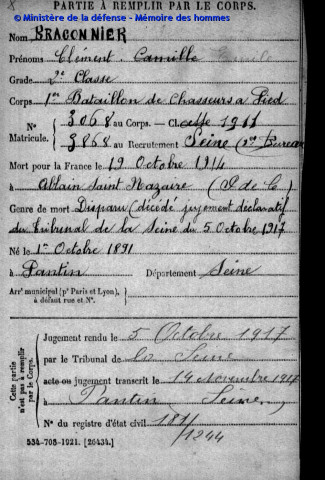 PARTIE À REMPLIR PAR LE CORPS.
© Ministère de la défense - Mémoire des hommes
Nom BRACONNIER
Prénoms Clément Camille
Grade 2e Classe
Corps 1er Bataillon de Chasseurs a Pied
N° 3068 au Corps. — Classe 1911
Matricule. 3868 au Recrutement Seine (2e Bureau
Mort pour la France le 19 Octobre 1914
à Ablain Saint Nazaire (P de C)
Genre de mort Disparu (décédé jugement déclaratif
du tribunal de la Seine du 5 Octobre 1917
Né le 1er Octobre 1891
à Pantin Département Seine
Arr' municipal (p' Paris et Lyon),
à défaut rue et N°.
Cette partie
n'est pas à remplir
par le Corps.
Jugement rendu le 5 Octobre 1917
par le Tribunal de la Seine
acte ou jugement transcrit le 14 Novembre 1917
à Pantin Seine
N° du registre d'état civil
1244
534-708-1921. [26434.]